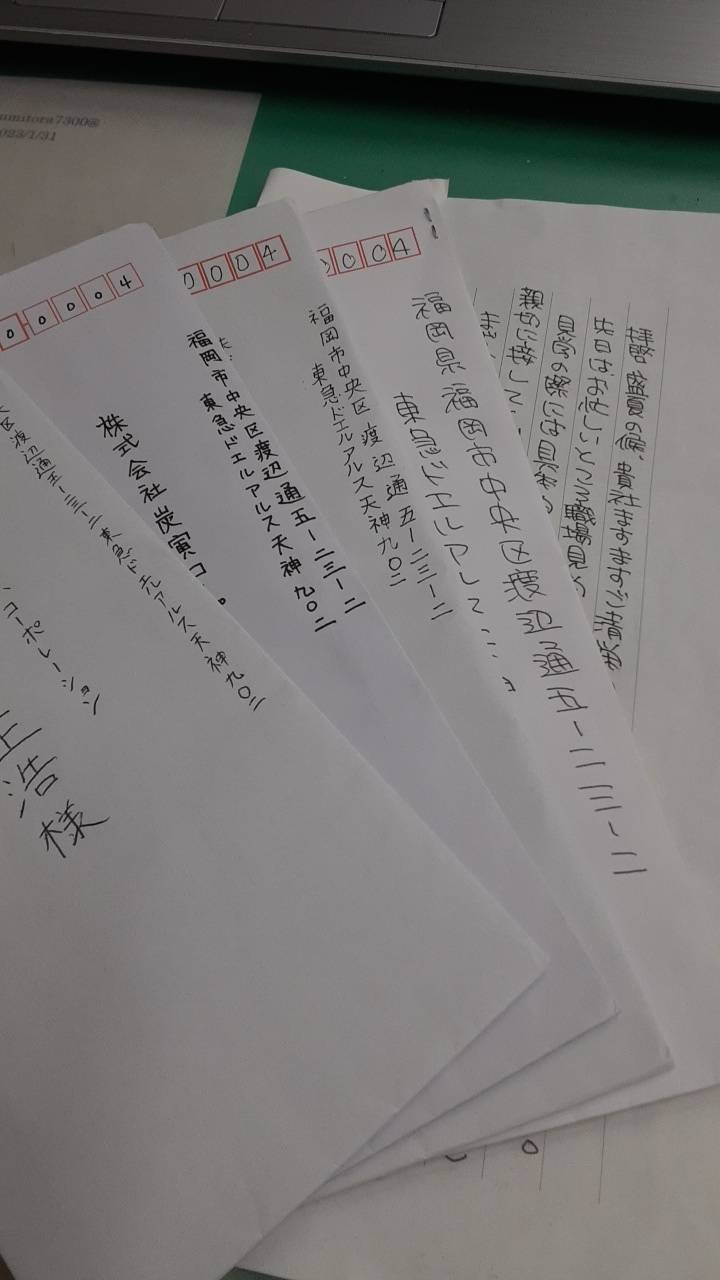 umitora7300@
023/1/31
拝啓 盛夏の候、貴社ますますご清栄
先日はお忙しいところ職場見
見学の際には
親切に接して
ま
0004
福岡県福岡市中央区渡辺通五ー二三ー二
東急ドエルアルス
0004
福岡市中央区渡辺通五ー二三ー二
東急ドエルアルス天神九〇二
00004
福岡市中央区渡辺通五ー二三ー二
東急ドエルアルス天神九〇二
株式会社炭寅コ
区渡辺通五ー二三ー二 東急ドエルアルス天神九〇二
コーポレーション
上浩様